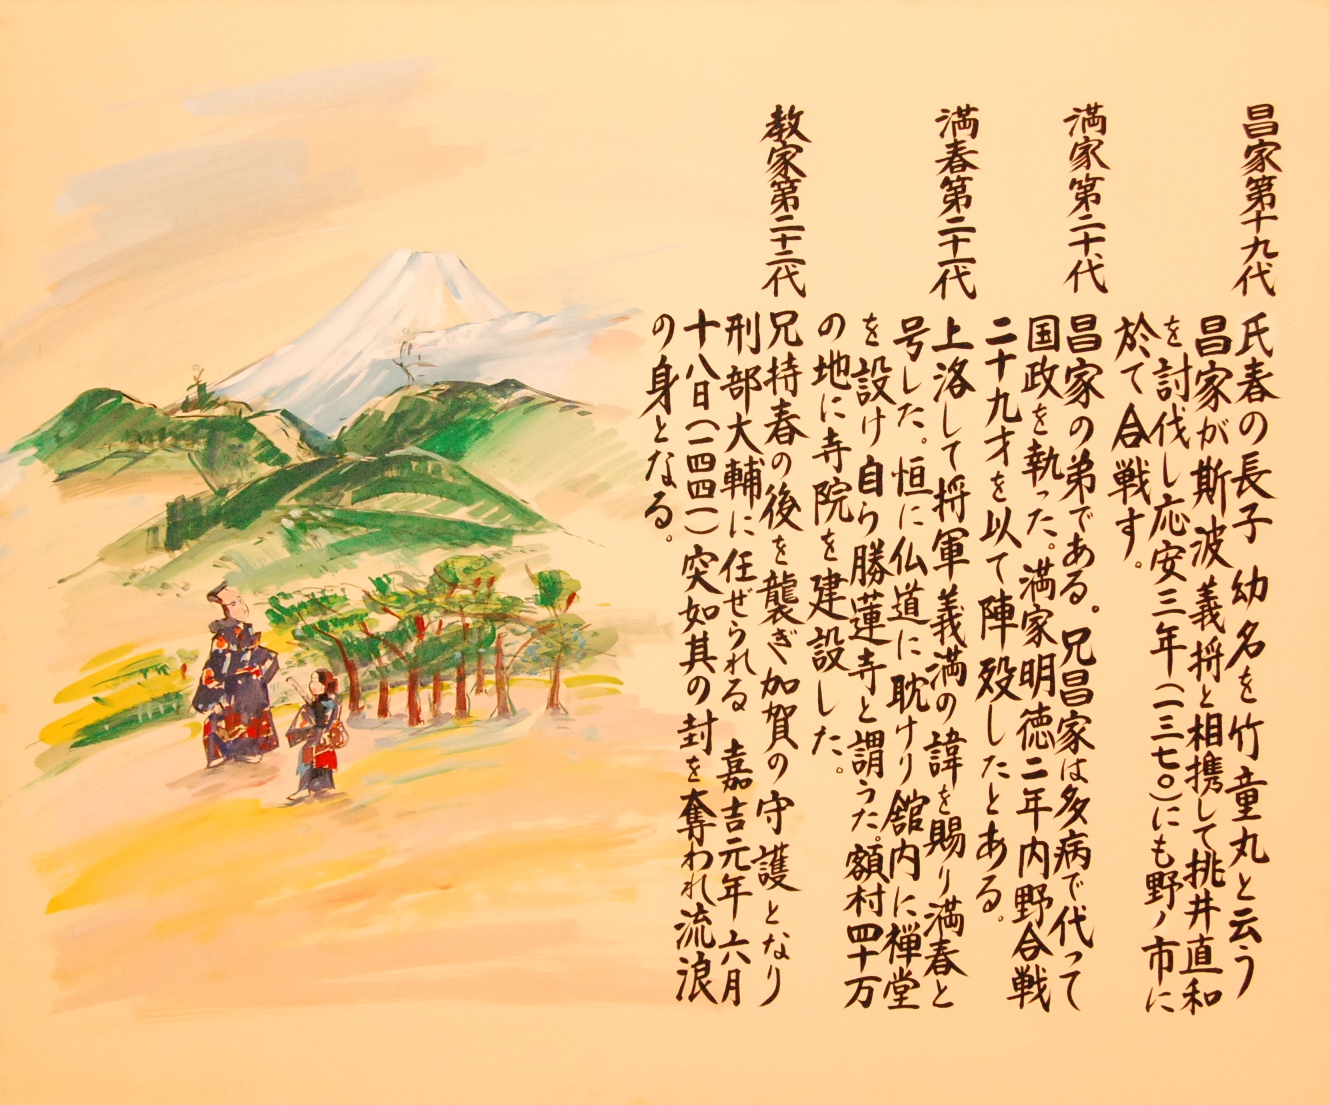 昌家第十九代
氏春の長子 幼名を竹童丸と云う
昌家が斯波義将と相携して挑井直和
を討伐し応安三年(一三七〇)にも野ノ市に
於て合戦す。
満家第二十代
昌家の弟である。兄昌家は多病で代って
国政を執った。満家明徳二年内野合戦
二十九才を以て陣歿したとある。
満春第二十一代
上洛して将軍義満の諱を賜り満春と
号した。恒に仏道に耽けり舘内に禅堂
を設け自ら勝蓮寺と謂うた。額村四十万
の地に寺院を建設した。
教家第二十二代
兄持春の後を襲ぎ加賀の守護となり
刑部大輔に任ぜられる 嘉吉元年六月
十八日(一四四一)突如其の封を奪われ流浪
の身となる。